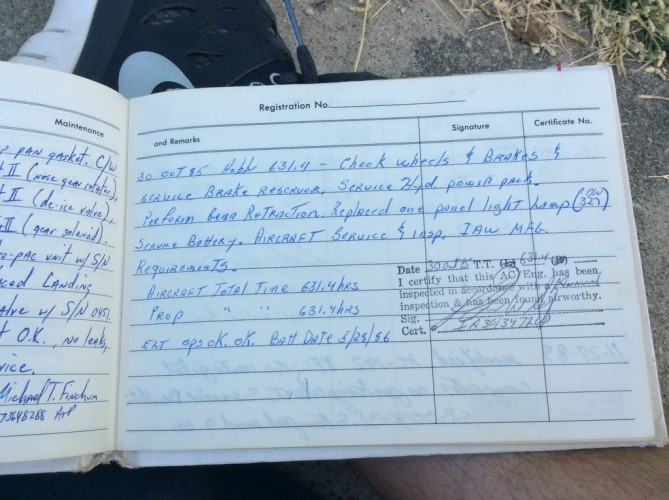 Maintenance
PAN gasket. C/W
II (nose gear rotator),
II (de-ice valve),
II (gear solenoid).
-pac unit w/ S/N
Landing
w/ S/N 0451
O.K., No leaks,
vice.
Michael T.
A+P
Registration No.
and Remarks
Signature
Certificate No.
30 Oct 85 Hobb 631.4 - Check wheels & Brakes &
service Brake reservoir. Service Hyd power pack.
Perform Gear Retraction. Replaced one panel light Lamp (P/N 327)
Service Battery. Aircraft Service & insp. IAW MFG.
Requirements.
Aircraft Total Time 631.4 hrs
Prop " " 631.4 hrs
ELT ops ck. OK. Batt Date 5/28/86
Date 30 Oct 85 T.T. 631.4
I certify that this AC/Eng. has been
inspected in accordance with a
inspection & has been found airworthy.
Sig.
Cert.